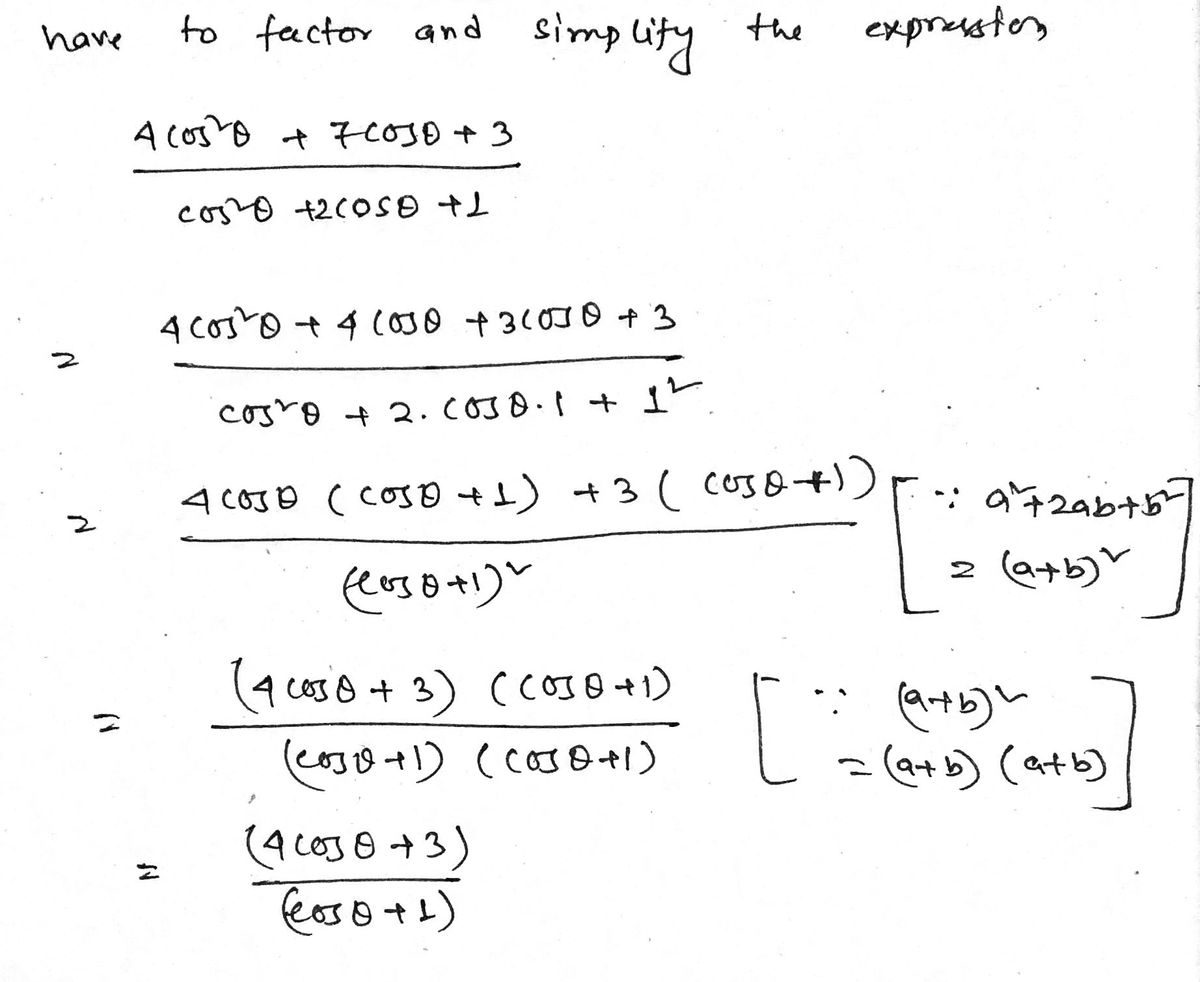 have to factor and simplify the expression
4cos²θ + 7cosθ + 3
cos²θ +2cosθ +1
= 4cos²θ + 4cosθ +3cosθ + 3
cos²θ + 2.cosθ.1 + 1²
= 4cosθ (cosθ +1) +3 (cosθ+1) [∵ a²+2ab+b²
(cosθ+1)² = (a+b)²]
= (4cosθ + 3) (cosθ+1) [∵ (a+b)²
(cosθ+1) (cosθ+1) = (a+b) (a+b)]
= (4cosθ +3)
(cosθ+1)